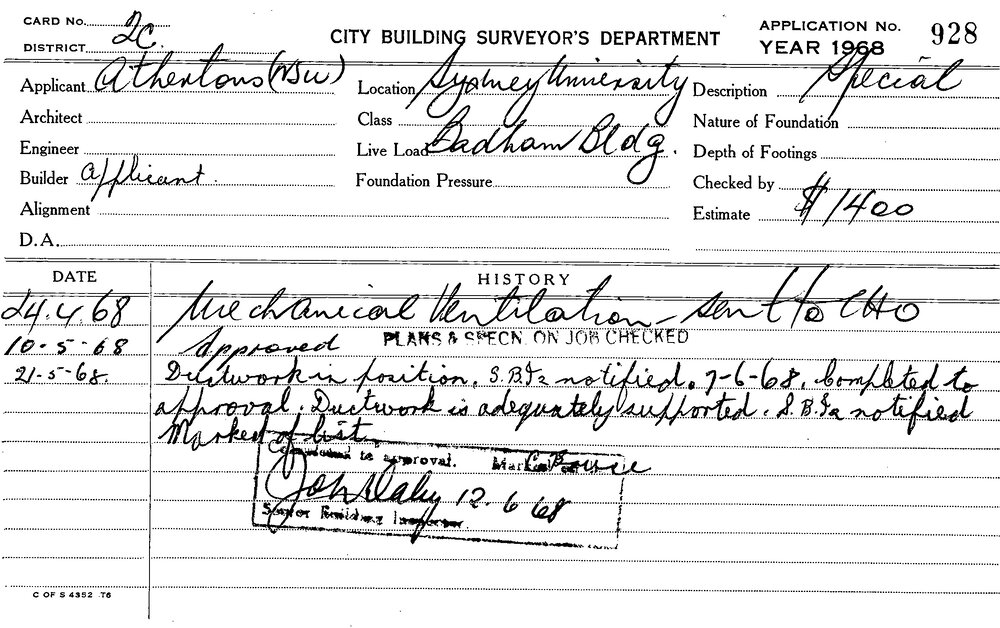 CARD No.
DISTRICT 2C.
CITY BUILDING SURVEYOR'S DEPARTMENT
APPLICATION No. 928
YEAR 1968
Applicant Athertons (NSW)
Location Sydney University
Description Special
Architect
Class
Nature of Foundation
Engineer
Live Load Badham Bldg.
Depth of Footings
Builder Applicant.
Foundation Pressure
Checked by
Alignment
Estimate $1400
D.A.
DATE
HISTORY
24.4.68 Mechanical Ventilation - sent to CHO
10-5-68 Approved PLANS & SPECN. ON JOB CHECKED
21-5-68. Ductwork in position. notified. 7-6-68. Completed to
approval. Ductwork is adequately supported. notified
Marked of list.
to approval.
12.6.68
Senior Building Inspector.
C OF S 4352 T6